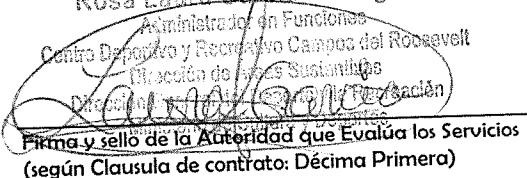 Rosa Laura
Administrador en Funciones
Centro Deportivo y Recreativo Campos del Roosevelt
Dirección de Areas Sustantivas
Dirección Recreación
Firma y sello de la Autoridad que Evalúa los Servicios
(según Clausula de contrato: Décima Primera)